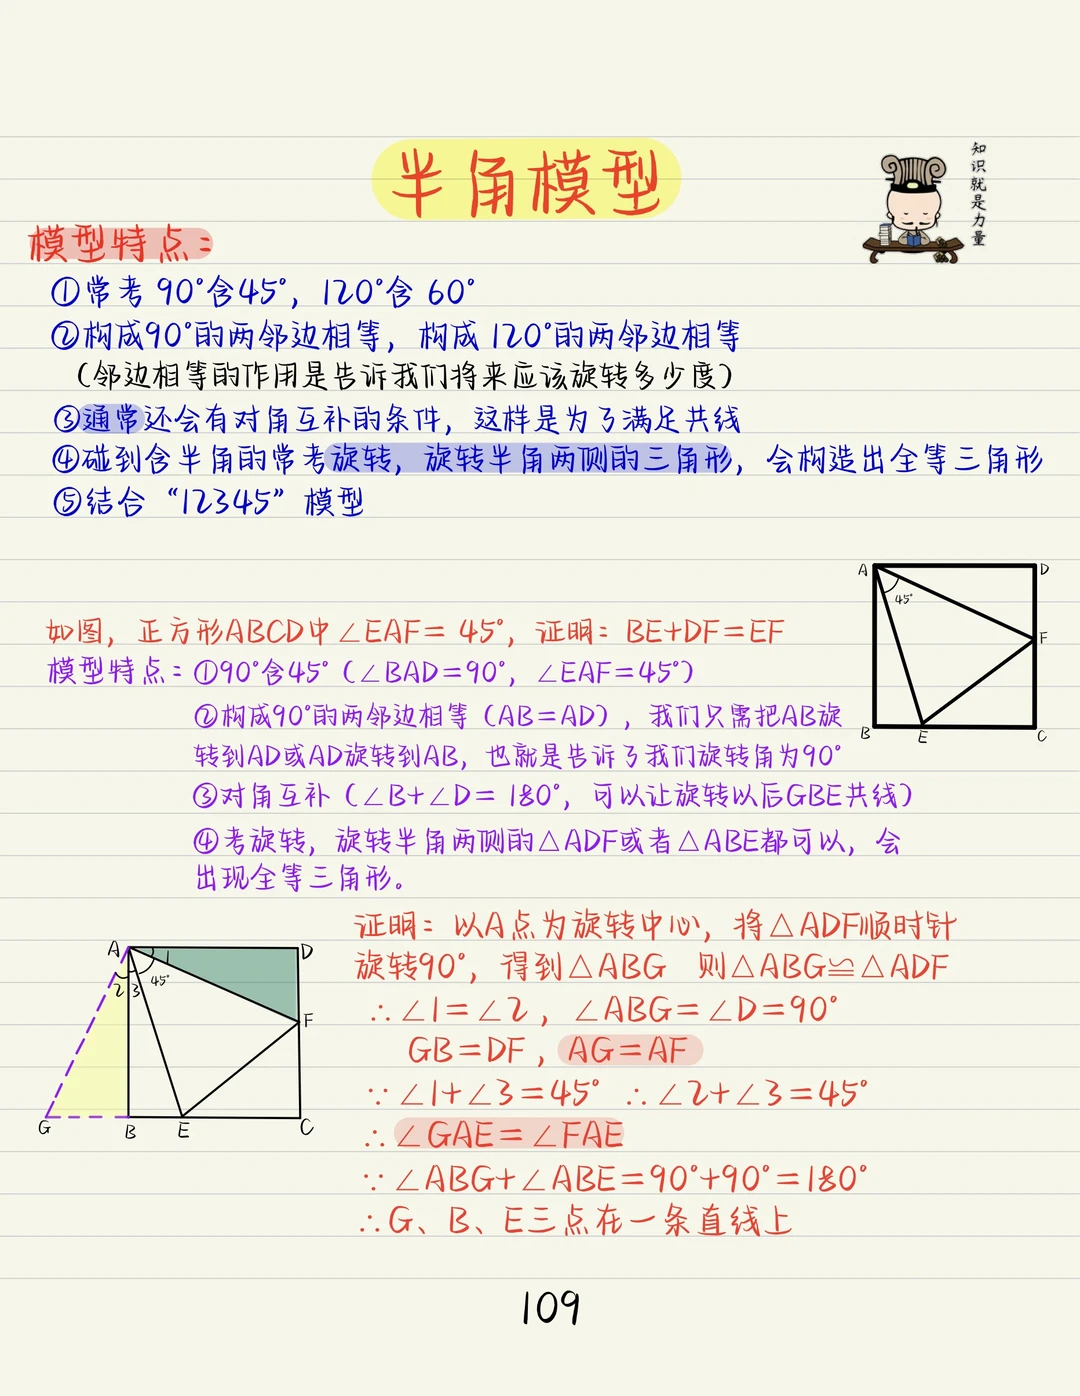 半角模型
知识就是力量
模型特点:
①常考 90°含45°, 120°含 60°
②构成90°的两邻边相等, 构成 120°的两邻边相等
(邻边相等的作用是告诉我们将来应该旋转多少度)
③通常还会有对角互补的条件, 这样是为了满足共线
④碰到含半角的常考旋转, 旋转半角两侧的三角形, 会构造出全等三角形
⑤结合 “12345” 模型
A
D
45°
F
B
E
C
如图, 正方形ABCD中∠EAF= 45°, 证明: BE+DF=EF
模型特点: ①90°含45° (∠BAD=90°, ∠EAF=45°)
②构成90°的两邻边相等 (AB=AD), 我们只需把AB旋
转到AD或AD旋转到AB, 也就是告诉了我们旋转角为90°
③对角互补 (∠B+∠D= 180°, 可以让旋转以后GBE共线)
④考旋转, 旋转半角两侧的△ADF或者△ABE都可以, 会
出现全等三角形。
A
D
1
45°
2 3
F
G
B
E
C
证明: 以A点为旋转中心, 将△ADF顺时针
旋转90°, 得到△ABG 则△ABG≌△ADF
∴∠1=∠2, ∠ABG=∠D=90°
GB=DF, AG=AF
∵∠1+∠3=45° ∴∠2+∠3=45°
∴∠GAE=∠FAE
∵∠ABG+∠ABE=90°+90°=180°
∴G、B、E三点在一条直线上
109